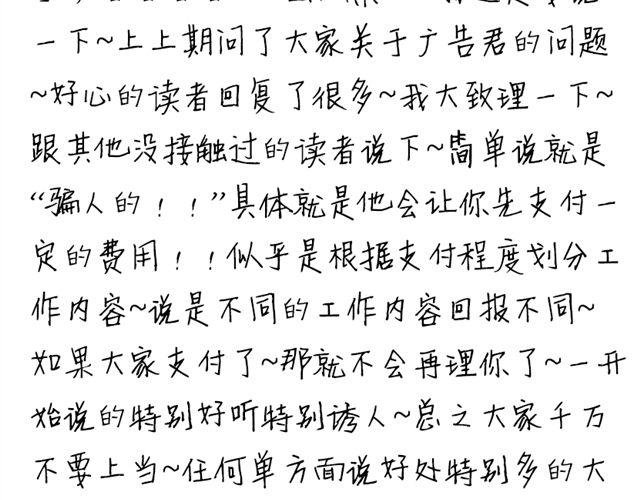 一下~上上期问了大家关于广告君的问题
~好心的读者回复了很多~我大致理一下~
跟其他没接触过的读者说下~简单说就是
“骗人的！！”具体就是他会让你先支付一
定的费用！！似乎是根据支付程度划分工
作内容~说是不同的工作内容回报不同~
如果大家支付了~那就不会再理你了~一开
始说的特别好听特别诱人~总之大家千万
不要上当~任何单方面说好处特别多的大